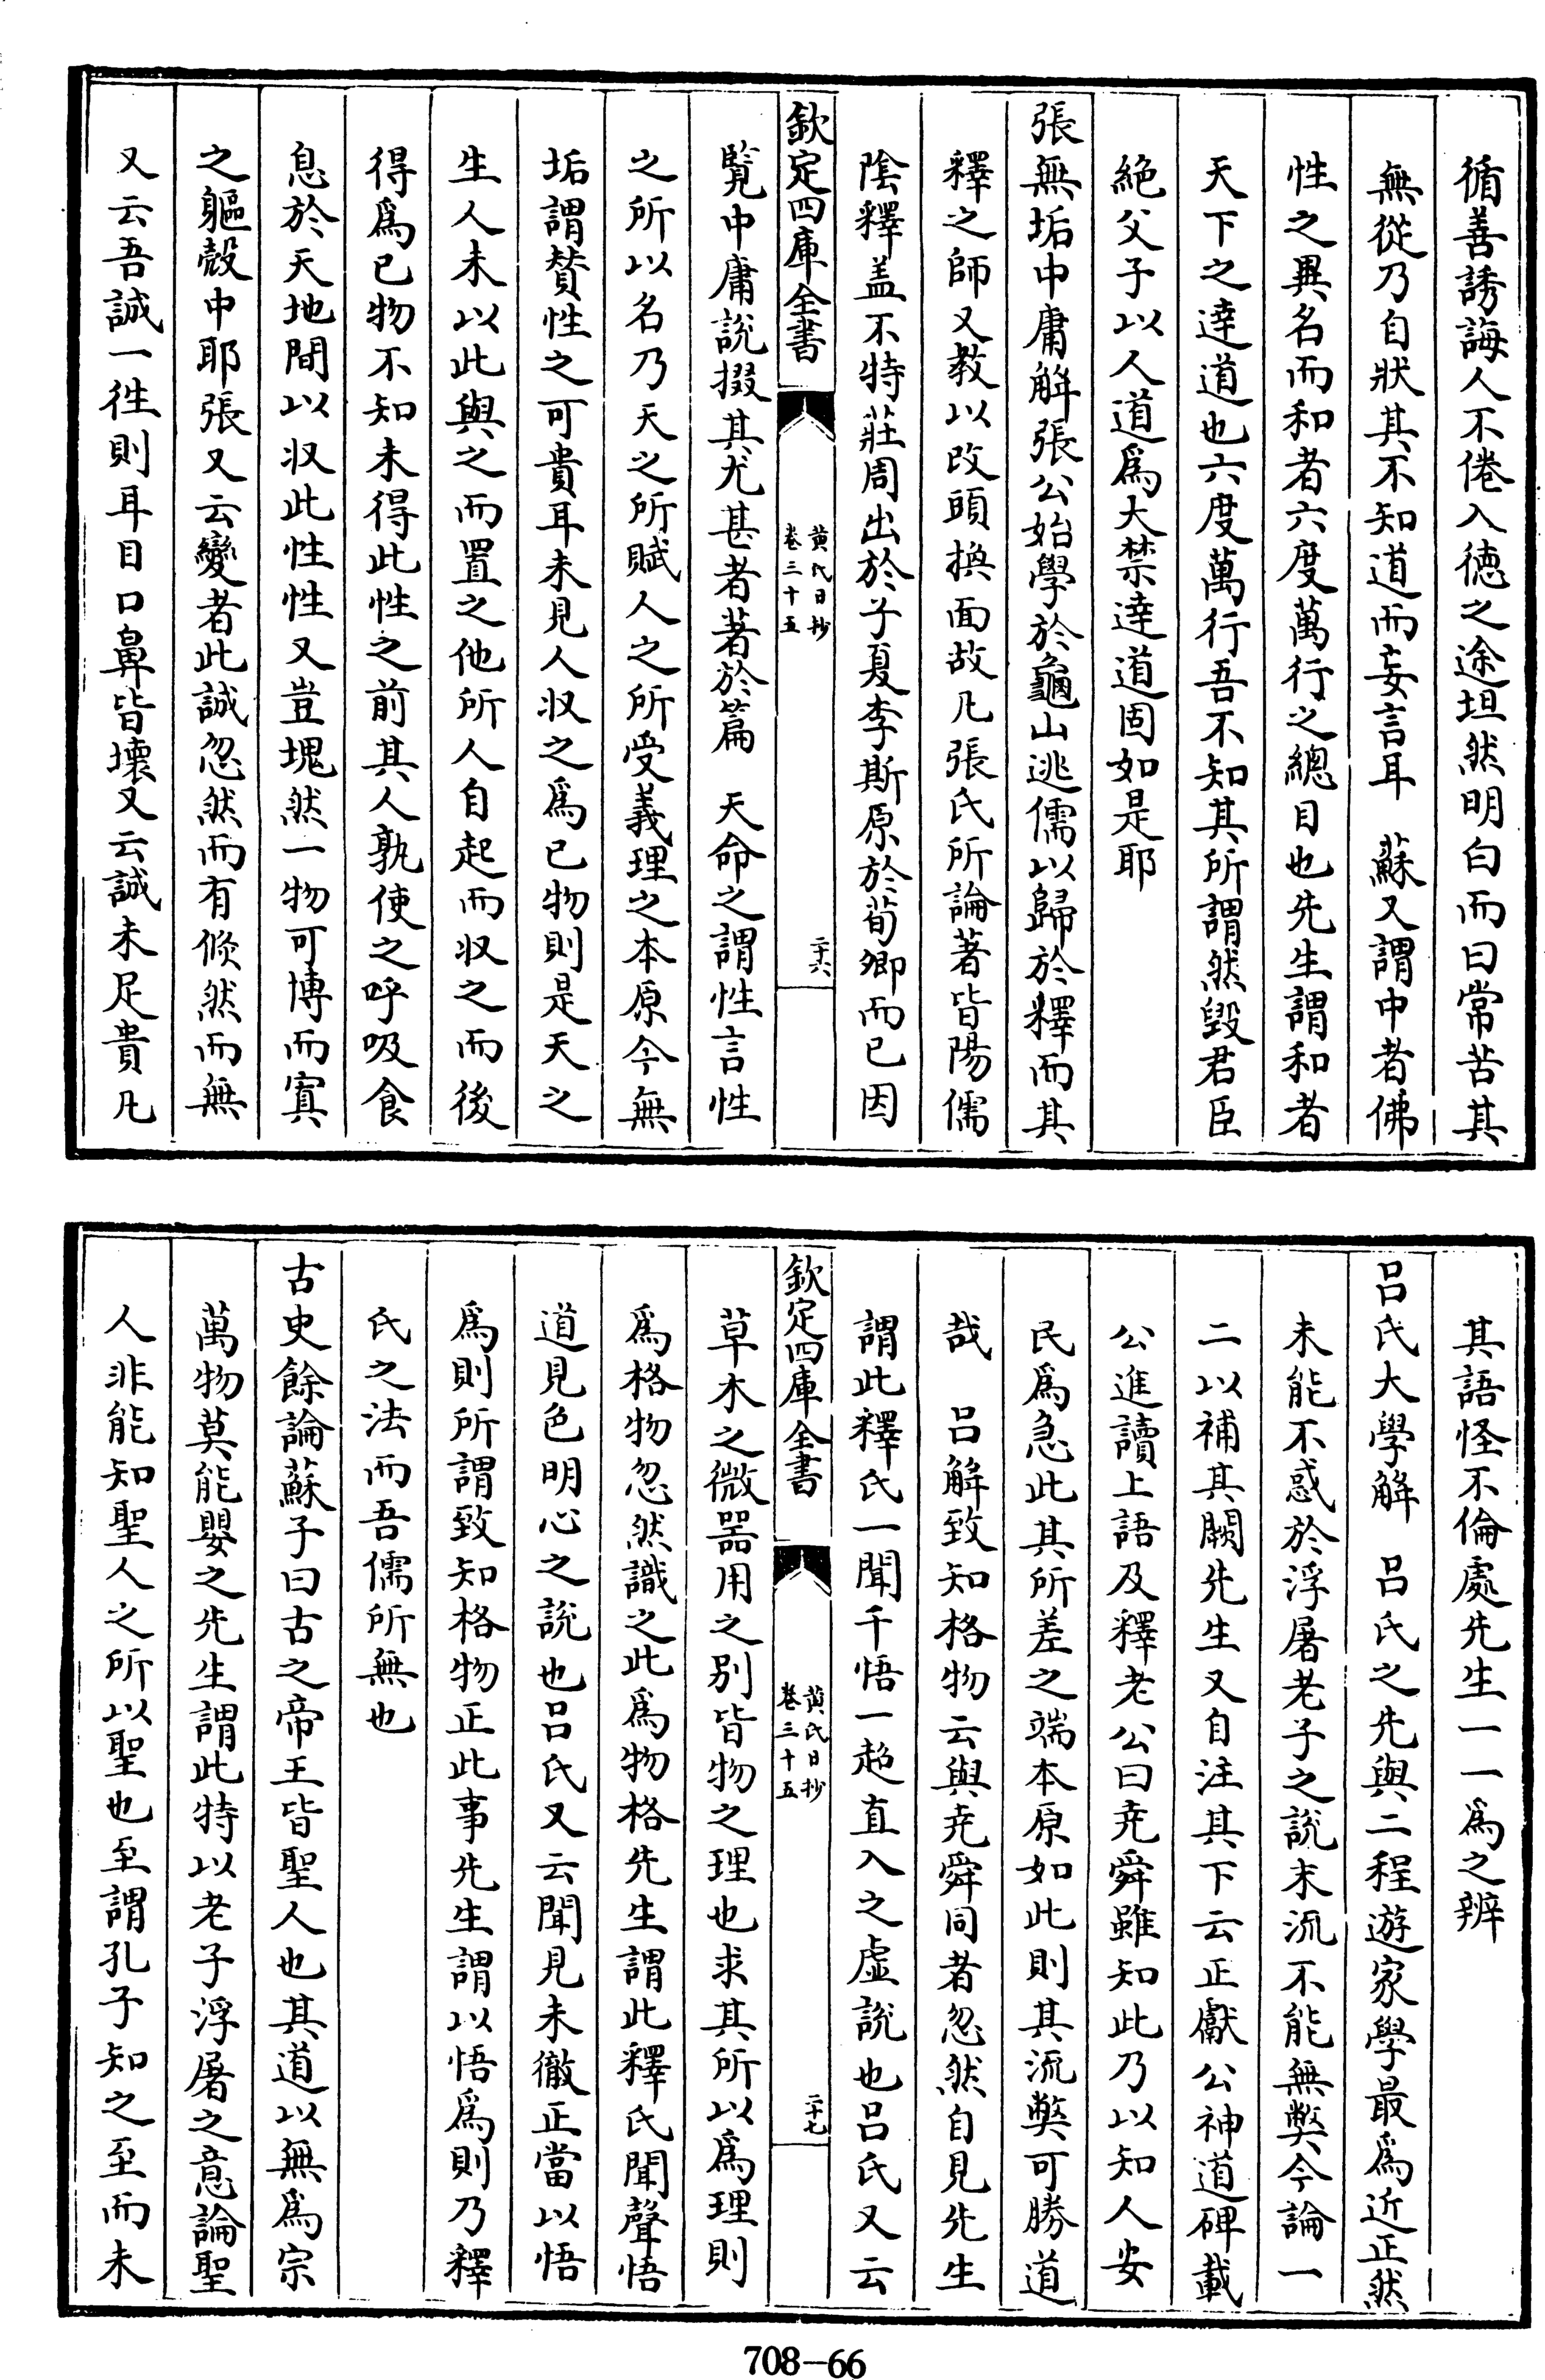 循善誘誨人不倦入徳之途坦然明白而曰常苦其
無從乃自狀其不知道而妄言耳　蘇又謂中者佛
性之異名而和者六度萬行之總目也先生謂和者
天下之達道也六度萬行吾不知其所謂然毀君臣
絶父子以人道爲大禁達道固如是耶
張無垢中庸解張公始學於龜山逃儒以歸於釋而其
釋之師又教以改頭換面故凡張氏所論著皆陽儒
陰釋盖不特莊周出於子夏李斯原於荀卿而已因
欽定四庫全書
黄氏日抄
卷三十五
二十六
覽中庸說掇其尤甚者著於篇　天命之謂性言性
之所以名乃天之所賦人之所受義理之本原今無
垢謂賛性之可貴耳未見人収之爲已物則是天之
生人未以此與之而置之他所人自起而収之而後
得爲已物不知未得此性之前其人孰使之呼吸食
息於天地間以収此性性又豈塊然一物可博而寘
之軀殼中耶張又云變者此誠忽然而有倐然而無
又云吾誠一徃則耳目口鼻皆壊又云誠未足貴凡
其語怪不倫處先生一一爲之辨
呂氏大學解　呂氏之先與二程遊家學最爲近正然
未能不惑於浮屠老子之說末流不能無弊今論一
二以補其闕先生又自注其下云正獻公神道碑載
公進讀上語及釋老公曰堯舜雖知此乃以知人安
民爲急此其所差之端本原如此則其流弊可勝道
哉　呂解致知格物云與堯舜同者忽然自見先生
謂此釋氏一聞千悟一超直入之虚說也呂氏又云
欽定四庫全書
黄氏日抄
卷三十五
二十七
草木之微器用之别皆物之理也求其所以爲理則
爲格物忽然識之此爲物格先生謂此釋氏聞聲悟
道見色明心之說也呂氏又云聞見未徹正當以悟
爲則所謂致知格物正此事先生謂以悟爲則乃釋
氏之法而吾儒所無也
古史餘論蘇子曰古之帝王皆聖人也其道以無爲宗
萬物莫能嬰之先生謂此特以老子浮屠之意論聖
人非能知聖人之所以聖也至謂孔子知之至而未
708-66